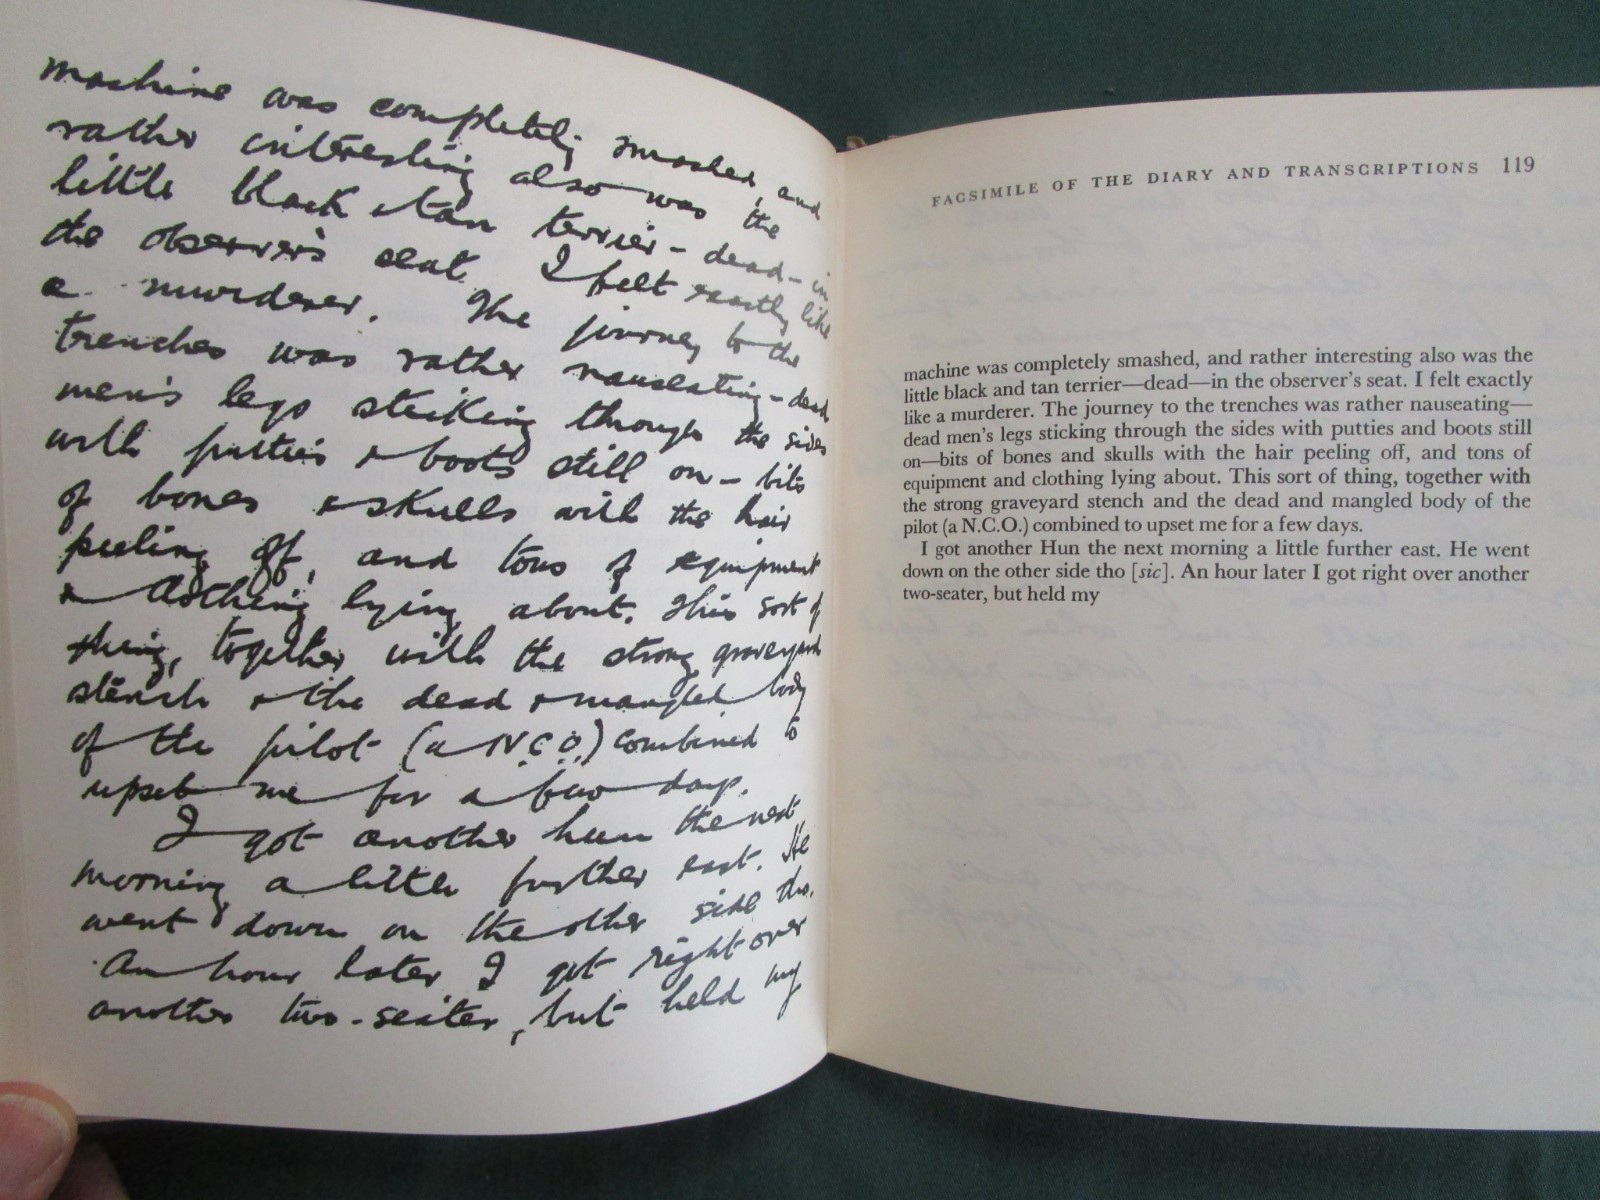 machine was completely smashed, and
rather interesting also was the
little black & tan terrier – dead – in
the observer's seat. I felt exactly like
a murderer. The journey to the
trenches was rather nauseating – dead
men's legs sticking through the sides
with putties & boots still on – bits
of bones & skulls with the hair
peeling off, and tons of equipment
& clothing lying about. This sort of
thing, together with the strong graveyard
stench & the dead & mangled body
of the pilot (a N.C.O.) combined to
upset me for a few days.
I got another hun the next
morning a little further east. He
went down on the other side tho.
An hour later I got right over
another two-seater, but held my
FACSIMILE OF THE DIARY AND TRANSCRIPTIONS 119
machine was completely smashed, and rather interesting also was the
little black and tan terrier—dead—in the observer's seat. I felt exactly
like a murderer. The journey to the trenches was rather nauseating—
dead men's legs sticking through the sides with putties and boots still
on—bits of bones and skulls with the hair peeling off, and tons of
equipment and clothing lying about. This sort of thing, together with
the strong graveyard stench and the dead and mangled body of the
pilot (a N.C.O.) combined to upset me for a few days.
I got another Hun the next morning a little further east. He went
down on the other side tho [sic]. An hour later I got right over another
two-seater, but held my